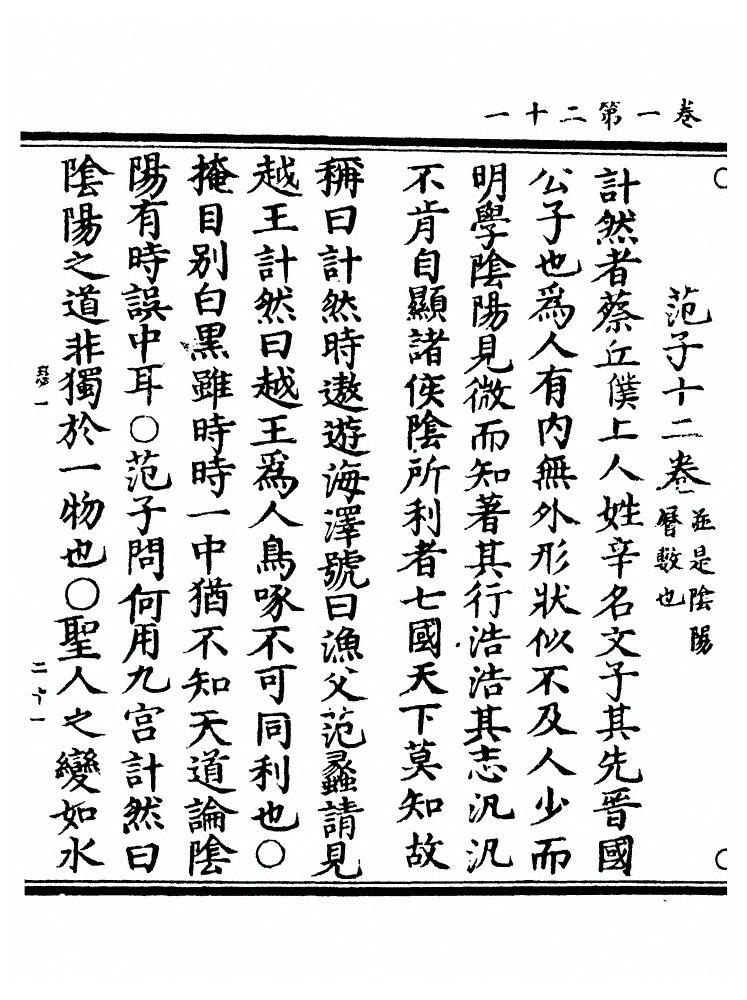 卷一第二十一
范子十二卷 並是陰陽曆數也
計然者蔡丘濮上人姓辛名文子其先晉國
公子也爲人有內無外形狀似不及人少而
明學陰陽見微而知著其行浩浩其志汎汎
不肯自顯諸侯陰所利者七國天下莫知故
稱曰計然時遨遊海澤號曰漁父范蠡請見
越王計然曰越王爲人鳥啄不可同利也○
掩目別白黑雖時時一中猶不知天道論陰
陽有時誤中耳○范子問何用九宮計然曰
陰陽之道非獨於一物也○聖人之變如水
一
二十一